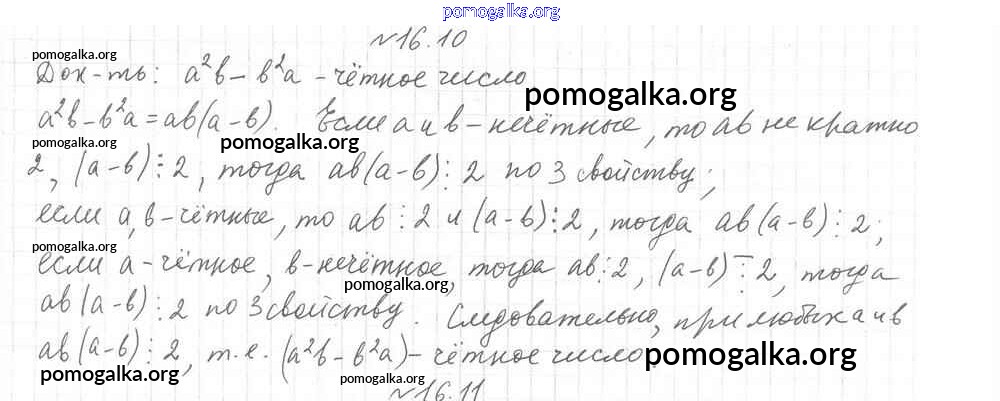 pomogalka.org
№16.10
pomogalka.org
Док-ть: a²b – b²a – чётное число
pomogalka.org
a²b – b²a = ab(a – b). Если a и b – нечётные, то ab не кратно
pomogalka.org pomogalka.org
2, (a – b) ⋮ 2, тогда ab(a – b) ⋮ 2 по 3 свойству;
если a, b – чётные, то ab ⋮ 2 и (a – b) ⋮ 2, тогда ab(a – b) ⋮ 2;
pomogalka.org
если a – чётное, b – нечётное, тогда ab ⋮ 2, (a – b) ⋮̅ 2, тогда
pomogalka.org
ab(a – b) ⋮ 2 по 3 свойству. Следовательно, при любых a и b
pomogalka.org
ab(a – b) ⋮ 2, т.е. (a²b – b²a) – чётное число.
pomogalka.org
pomogalka.org pomogalka.org
№16.11